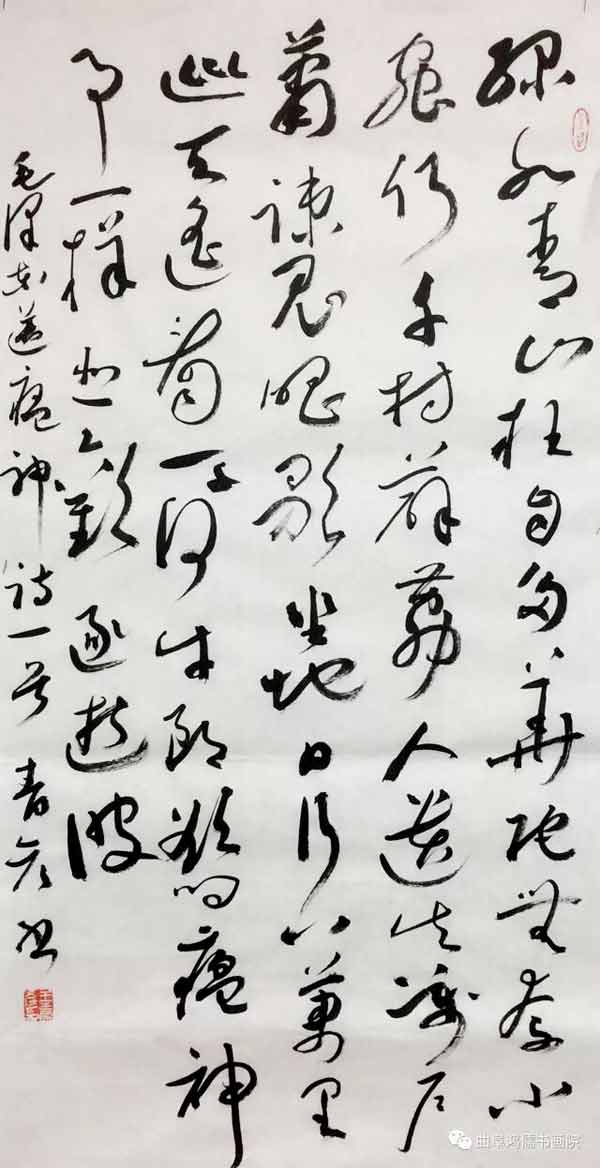 绿水青山枉自多華佗無奈小
蟲何千村薜荔人遗矢萬户
蕭疎鬼唱歌坐地日行八萬里
巡天遥看一千河牛郎欲问瘟神
事一样悲歡逐逝波
毛泽东送瘟神诗一首 书
曲阜鸣儒书画院